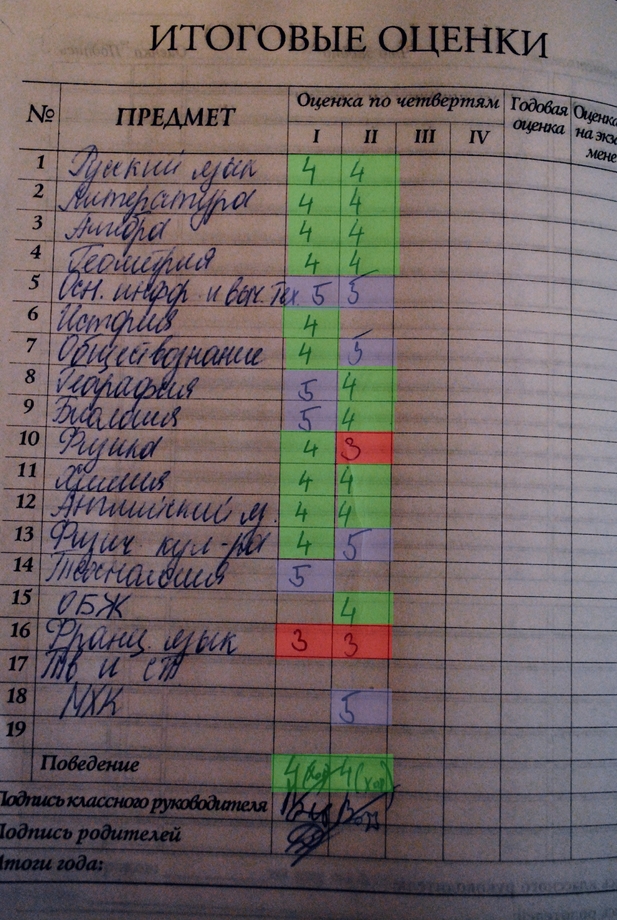 ИТОГОВЫЕ ОЦЕНКИ
№ ПРЕДМЕТ Оценка по четвертям Годовая оценка Оценка на экза мене
I II III IV
1 Русский язык 4 4
2 Литература 4 4
3 Алгебра 4 4
4 Геометрия 4 4
5 Осн. инфр. и выч. тех. 5 5
6 История 4
7 Обществознание 4 5
8 География 5 4
9 Биология 5 4
10 Физика 4 3
11 Химия 4 4
12 Английский я. 4 4
13 Физич. кул-ра 4 5
14 Технология 5
15 ОБЖ 4
16 Франц. язык 3 3
17 Тв и ст
18 МХК 5
19
Поведение 4 (хор) 4 (хор)
Подпись классного руководителя
Подпись родителей
Итоги года: